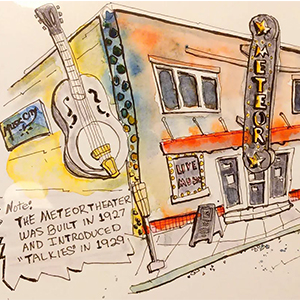 METEOR
LIVE
MUSIC
Note:
THE METEOR THEATER
WAS BUILT IN 1927
AND INTRODUCED
"TALKIES" IN 1929.